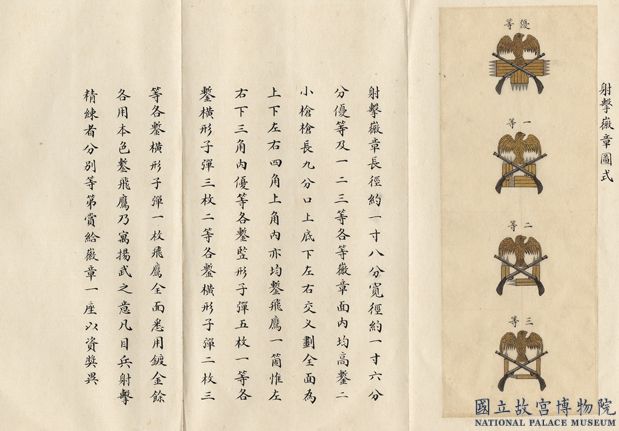 射擊徽章圖式
優等
一等
二等
三等
射擊徽章長徑約一寸八分寬徑約一寸六分
分優等及一二三等各等徽章面內均高鏨二
小槍槍長九分口上底下左右交叉劃全面為
上下左右四角上角內亦均鏨飛鷹一箇惟左
右下三角內優等各鏨豎形子彈五枚一等各
鏨橫形子彈三枚二等各鏨橫形子彈二枚三
等各鏨橫形子彈一枚飛鷹全面悉用鍍金餘
各用本色鏨飛鷹乃寓揚武之意凡目兵射擊
精練者分別等第賞給徽章一座以資奬異
國立故宮博物院
NATIONAL PALACE MUSEUM